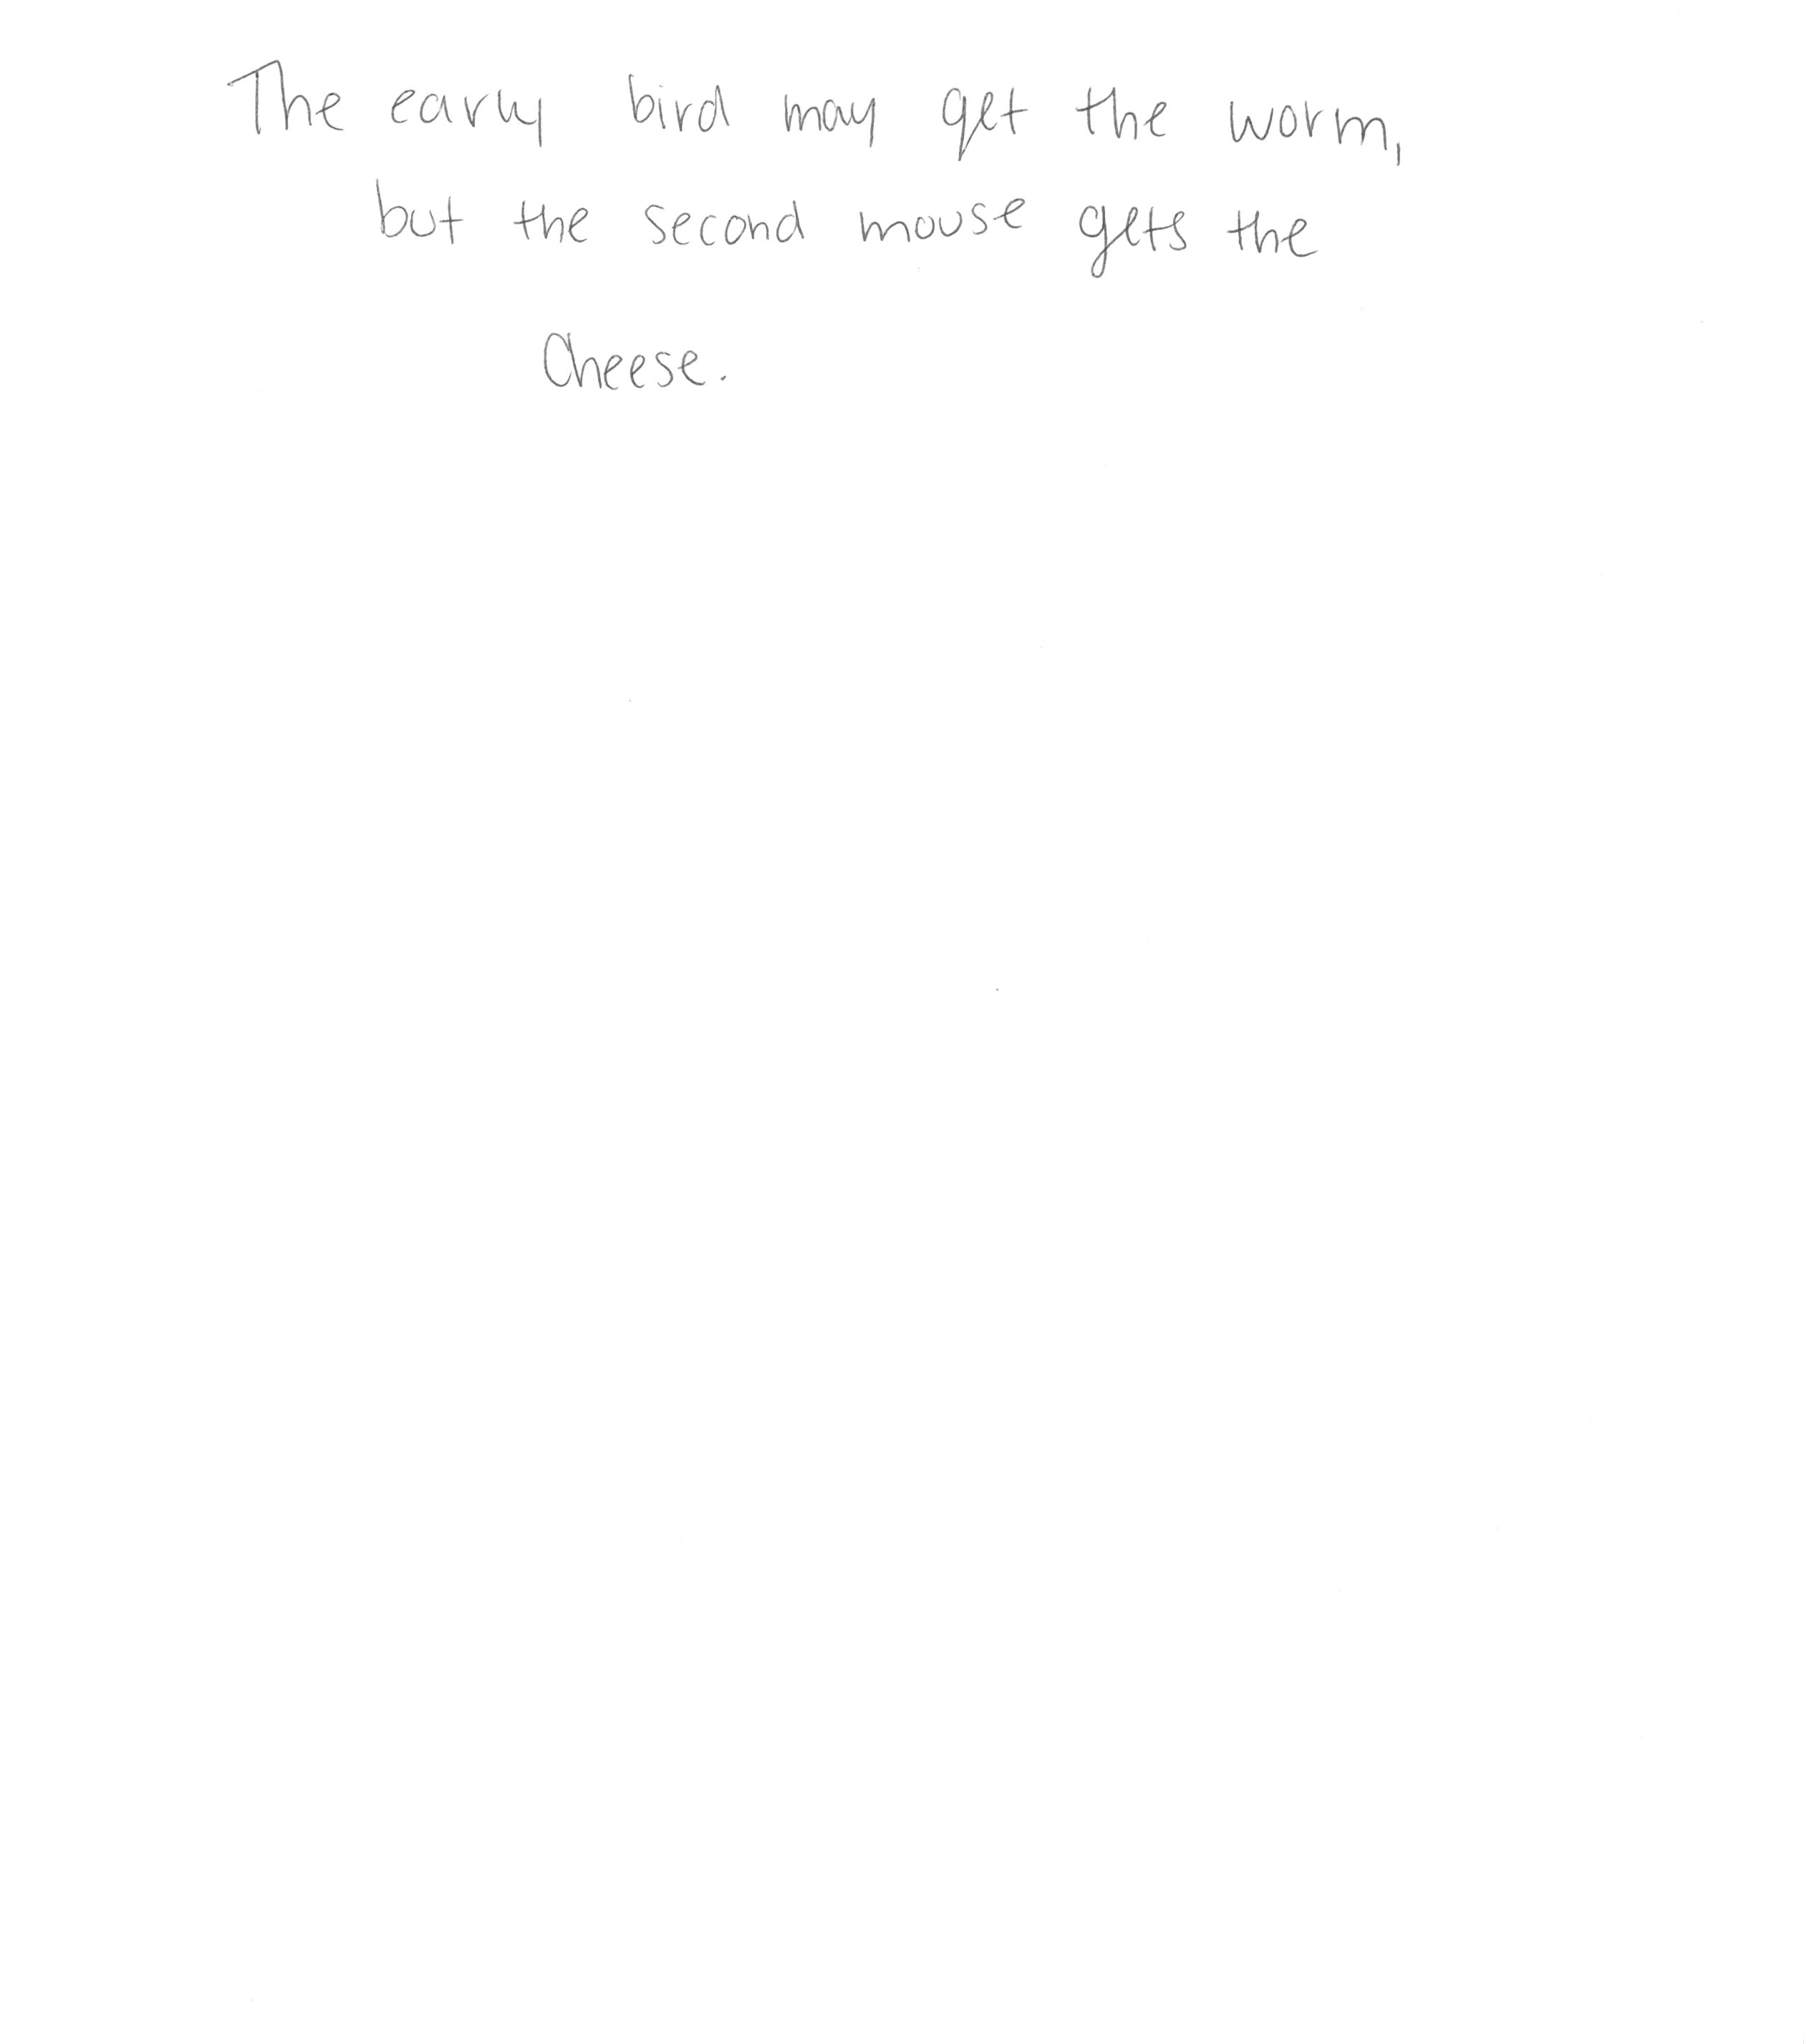 The early bird may get the worm,
but the second mouse gets the
Cheese.